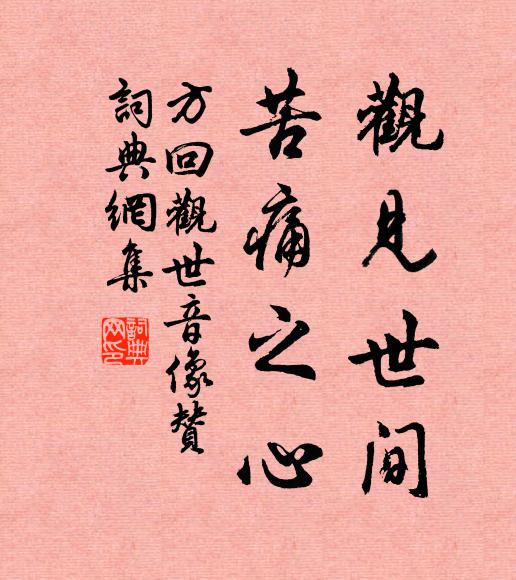 觀見世间
苦痛之心
方回觀世音像贊
詞典網集
詞典網印